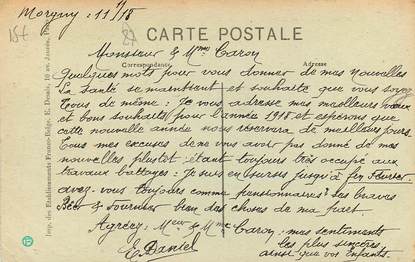 Morgny: 11/1/18
157
CARTE POSTALE
Monsieur & Mme Caron
Correspondance
Adresse
Quelques mots pour vous donner de mes nouvelles
La Santé se maintient et souhaite que vous soyez
Tous de même : Je vous adresse mes meilleurs vœux
et bons souhaits pour l'année 1918 et espérons que
cette nouvelle année nous réservera de meilleurs jours.
Tous mes excuses de ne vous avoir pas donné de mes
nouvelles plustot, étant toujours très occupé aux
travaux battages : Je suis en sursis jusqu'à fin Février
avez-vous toujours comme pensionnaires les braves
Béer & Fournier bien des choses de ma part
Agréez Mme & Mme Caron, mes sentiments
les plus sincères
ainsi que vos Enfants.
E. Daniel
Imp. des Etablissements Franco-Belge, E. Desaix, 10 av. Jeanne,